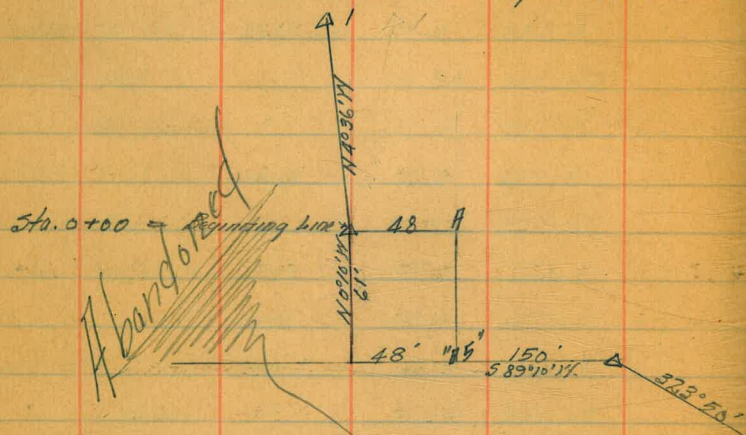 1
N4°36'W.
Abandoned
Sta. 0+00 = Beginning Line
48
A
N0°16'W.
61'
48'
150'
S 89°10'
323°50'